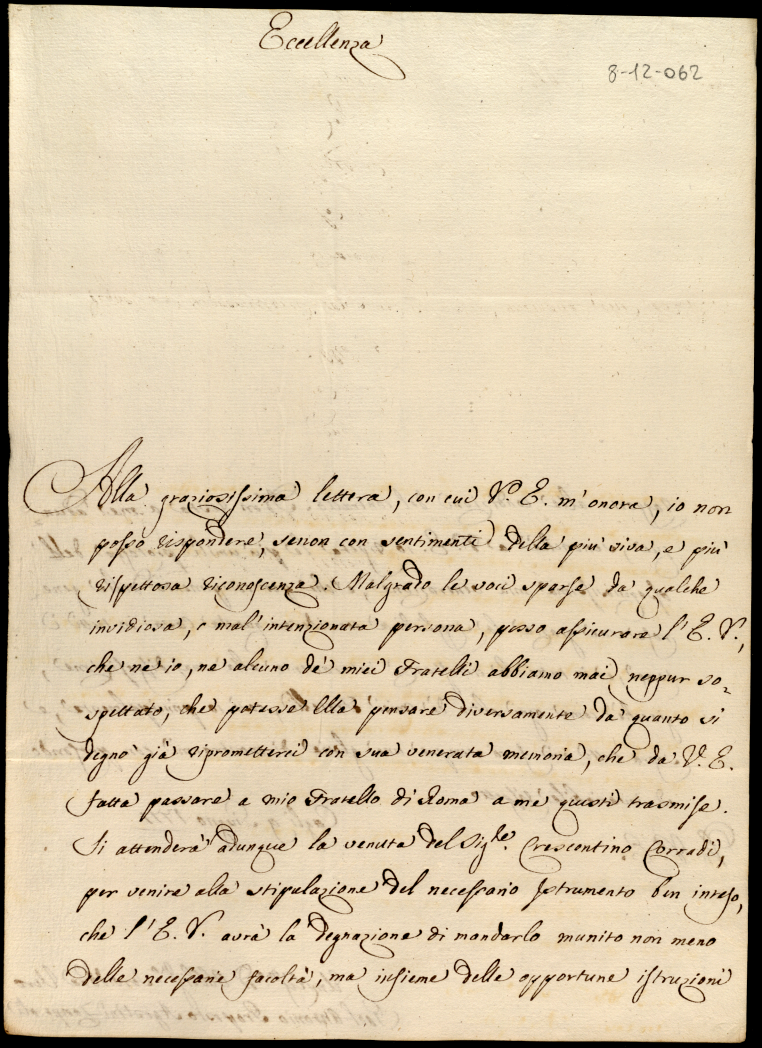 Eccellenza
8-12-062
Alla graziosissima lettera, con cui V.ª E. m'onora, io non
posso rispondere, senon con sentimenti della più viva, e più
rispettosa riconoscenza. Malgrado le voci sparse da qualche
invidiosa, e mal'intenzionata persona, posso assicurare l'E.V.,
che ne io, ne alcuno de' miei Fratelli abbiamo mai neppur so=
spettato, che potesse Ella pensare diversamente da quanto si
degnò già riprometterci con sua venerata memoria, che da V.E.
fatta passare a mio Fratello di Roma a me questi trasmise.
Si attenderà adunque la venuta del Sig.re Crescentino Corradi,
per venire alla stipulazione del necessario Istrumento ben inteso,
che l'E.V. avrà la degnazione di mandarlo munito non meno
delle necessarie facoltà, ma insieme delle opportune istruzioni